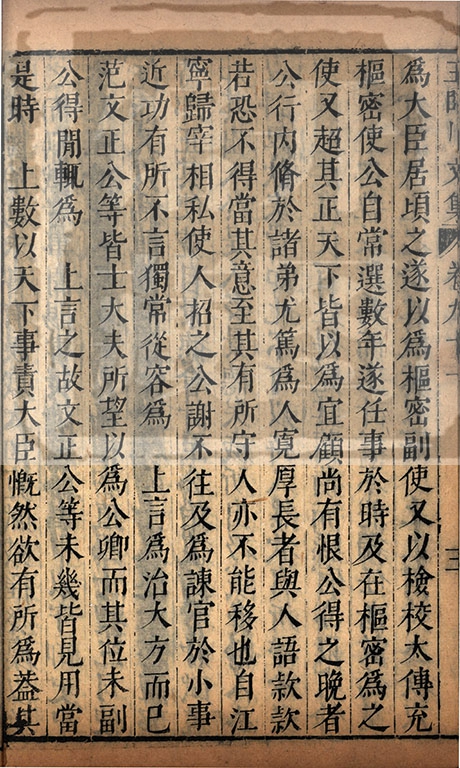 王臨川文集 卷九十 三
爲大臣居頃之遂以爲樞密副使又以檢校太傅充
樞密使公自常選數年遂任事於時及在樞密爲之
使又超其正天下皆以爲宜顧尚有恨公得之晚者
公行内脩於諸弟尤篤爲人寛厚長者與人語款款
若恐不得當其意至其有所守人亦不能移也自江
寧歸宰相私使人招之公謝不往及爲諫官於小事
近功有所不言獨常從容爲 上言爲治大方而已
范文正公等皆士大夫所望以爲公卿而其位未副
公得閒輒爲 上言之故文正公等未幾皆見用當
是時 上數以天下事責大臣慨然欲有所爲葢其